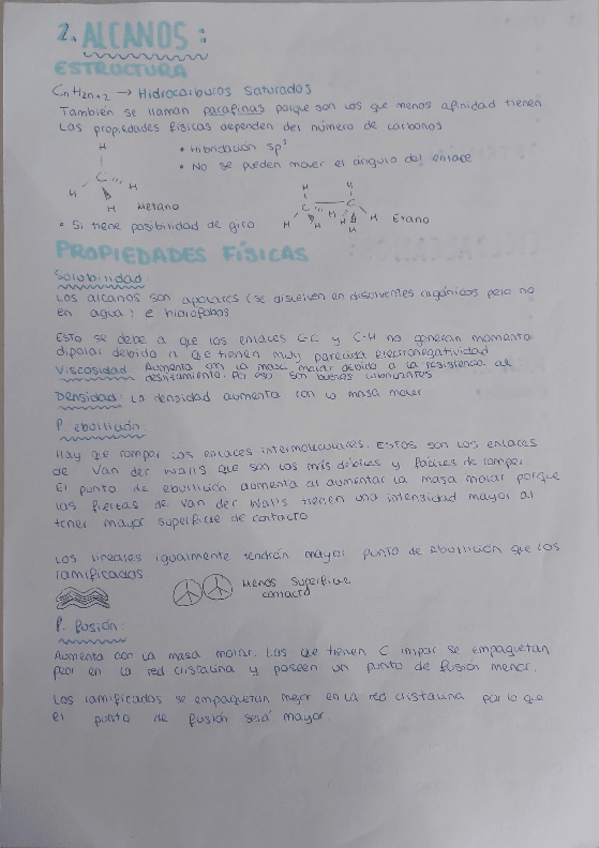 2. ALCANOS:
ESTRUCTURA
CnH2n+2 → Hidrocarburos saturados
También se llaman parafinas porque son los que menos afinidad tienen
Las propiedades físicas dependen del número de carbonos
• Hibridación sp³
• No se pueden mover el ángulo del enlace
H
C
H
H
H
Metano
H
H
C
C
H
H
H
H
Etano
• Si tiene posibilidad de giro
PROPIEDADES FÍSICAS
Solubilidad:
Los alcanos son apolares (se disuelven en disolventes orgánicos pero no
en agua) e hidrófobos
Esto se debe a que los enlaces C-C y C-H no generan momento
dipolar debido a que tienen muy parecida electronegatividad
Viscosidad: Aumenta con la masa molar debido a la resistencia al
deslizamiento. Por eso son buenos lubricantes
Densidad: La densidad aumenta con la masa molar
P. ebullición:
Hay que romper los enlaces intermoleculares. Estos son los enlaces
de Van der Walls que son los más débiles y fáciles de romper
El punto de ebullición aumenta al aumentar la masa molar porque
las fuerzas de Van der Walls tienen una intensidad mayor al
tener mayor superficie de contacto
Los lineales igualmente tendrán mayor punto de ebullición que los
ramificados.
Menos superficie
contacto
P. fusión:
Aumenta con la masa molar. Las que tienen C impar se empaquetan
peor en la red cristalina y poseen un punto de fusión menor.
Los ramificados se empaquetan mejor en la red cristalina por lo que
el punto de fusión será mayor.